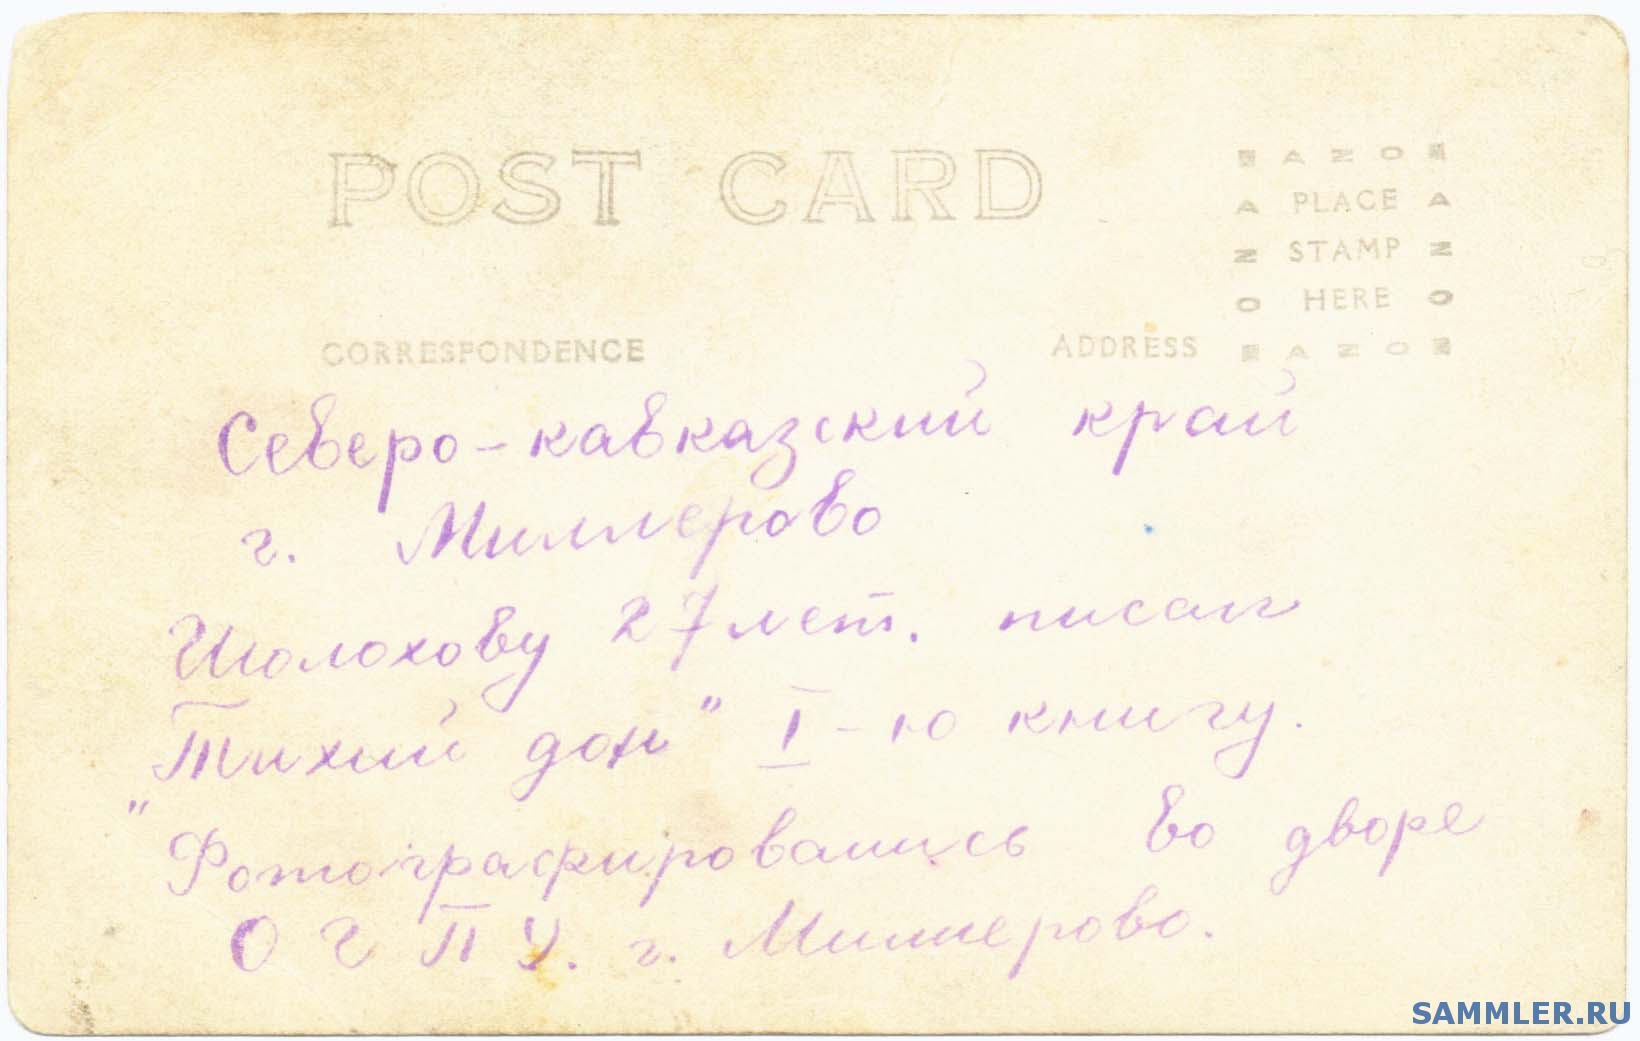 POST CARD
AZO
PLACE
STAMP
HERE
AZO
CORRESPONDENCE
ADDRESS
Северо-кавказский край
г. Миллерово
Шолохову 27 лет. писал
"Тихий дон" I-ю книгу.
Фотографировались во дворе
О Г П У. г. Миллерово.
SAMMLER.RU